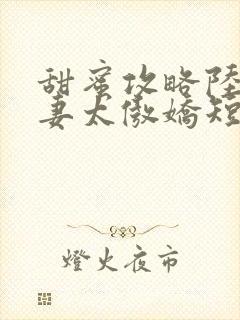 甜蜜攻略陸
妻太傲嬌短
燈火夜市